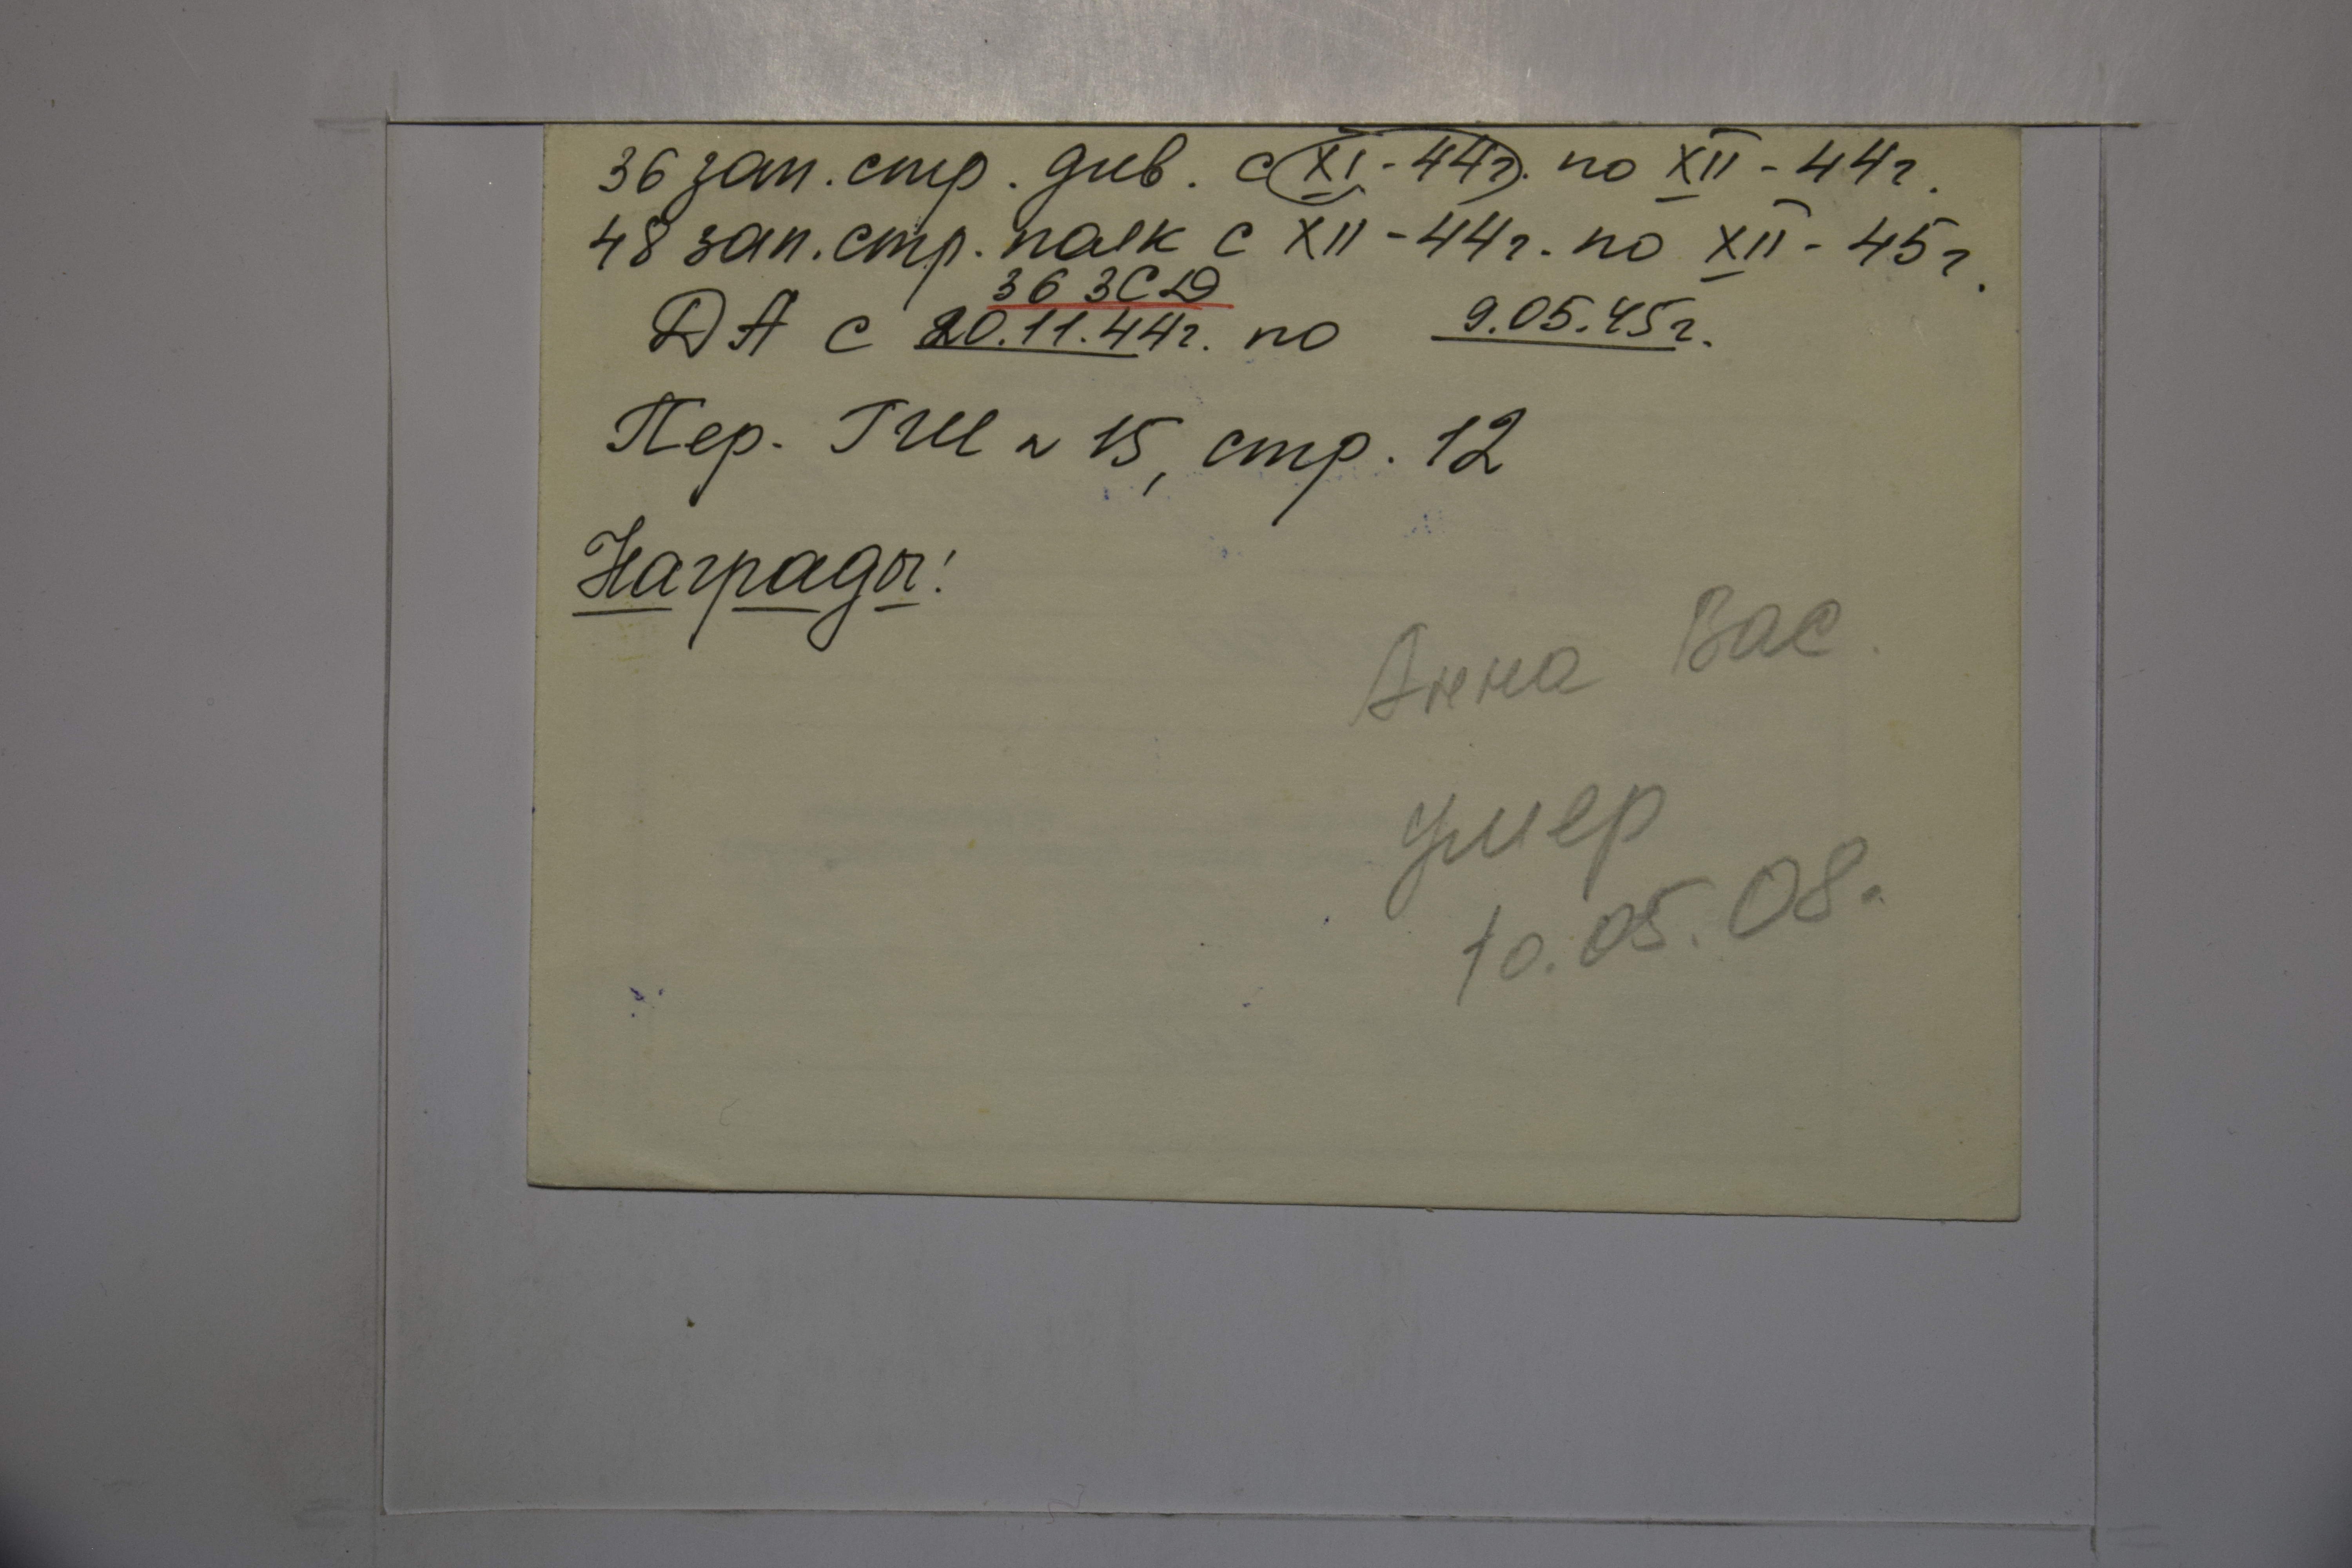 36 зап. стр. див. с XI - 44г. по XII - 44г.
48 зап. стр. полк с XII - 44г. по XII - 45г.
36 ЗСД
ДА с 20.11.44г. по 9.05.45г.
Пер. ГШ № 15, стр. 12
Награды:
Анна Вас.
умер
10.05.08.